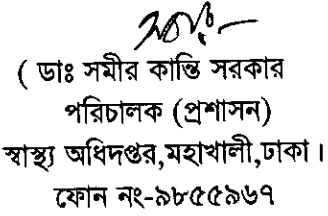 ( ডাঃ সমীর কান্তি সরকার
পরিচালক (প্রশাসন)
স্বাস্থ্য অধিদপ্তর,মহাখালী,ঢাকা।
ফোন নং-৯৮৫৫৯৬৭